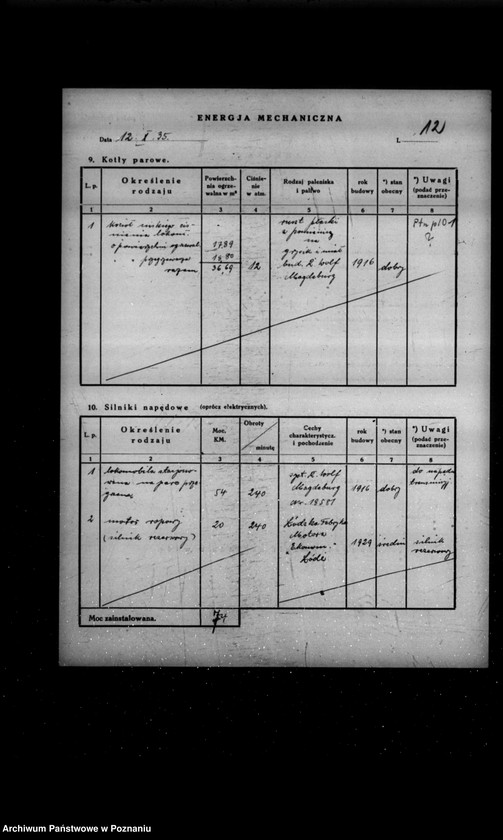 ENERGJA MECHANICZNA
Data 12. X. 35.
L. 12
9. Kotły parowe.
L. p. Określenie rodzaju Powierzchnia ogrzewalna w m² Ciśnienie w atm. Rodzaj paleniska i paliwo rok budowy *) stan obecny *) Uwagi (podać przeznaczenie)
1 2 3 4 5 6 7 8
1 ruszt płaski
17.89 na
18.80
razem 36.69 12 bud. R. Wolf Magdeburg 1916 dobry
10. Silniki napędowe (oprócz elektrycznych).
L. p. Określenie rodzaju Moc. KM. Obroty minutę Cechy charakterystycz. i pochodzenie rok budowy *) stan obecny *) Uwagi (podać przeznaczenie)
1 2 3 4 5 6 7 8
1 lokomobila na parę 54 240 R. Wolf Magdeburg nr. 18551 1916 dobry do napędu transmisji
2 motor ropowy (silnik rezerwowy) 20 240 Łódzka Fabryka Motorów "Ekonom" Łódź 1929 średni silnik rezerwowy
Moc zainstalowana. 74
Archiwum Państwowe w Poznaniu